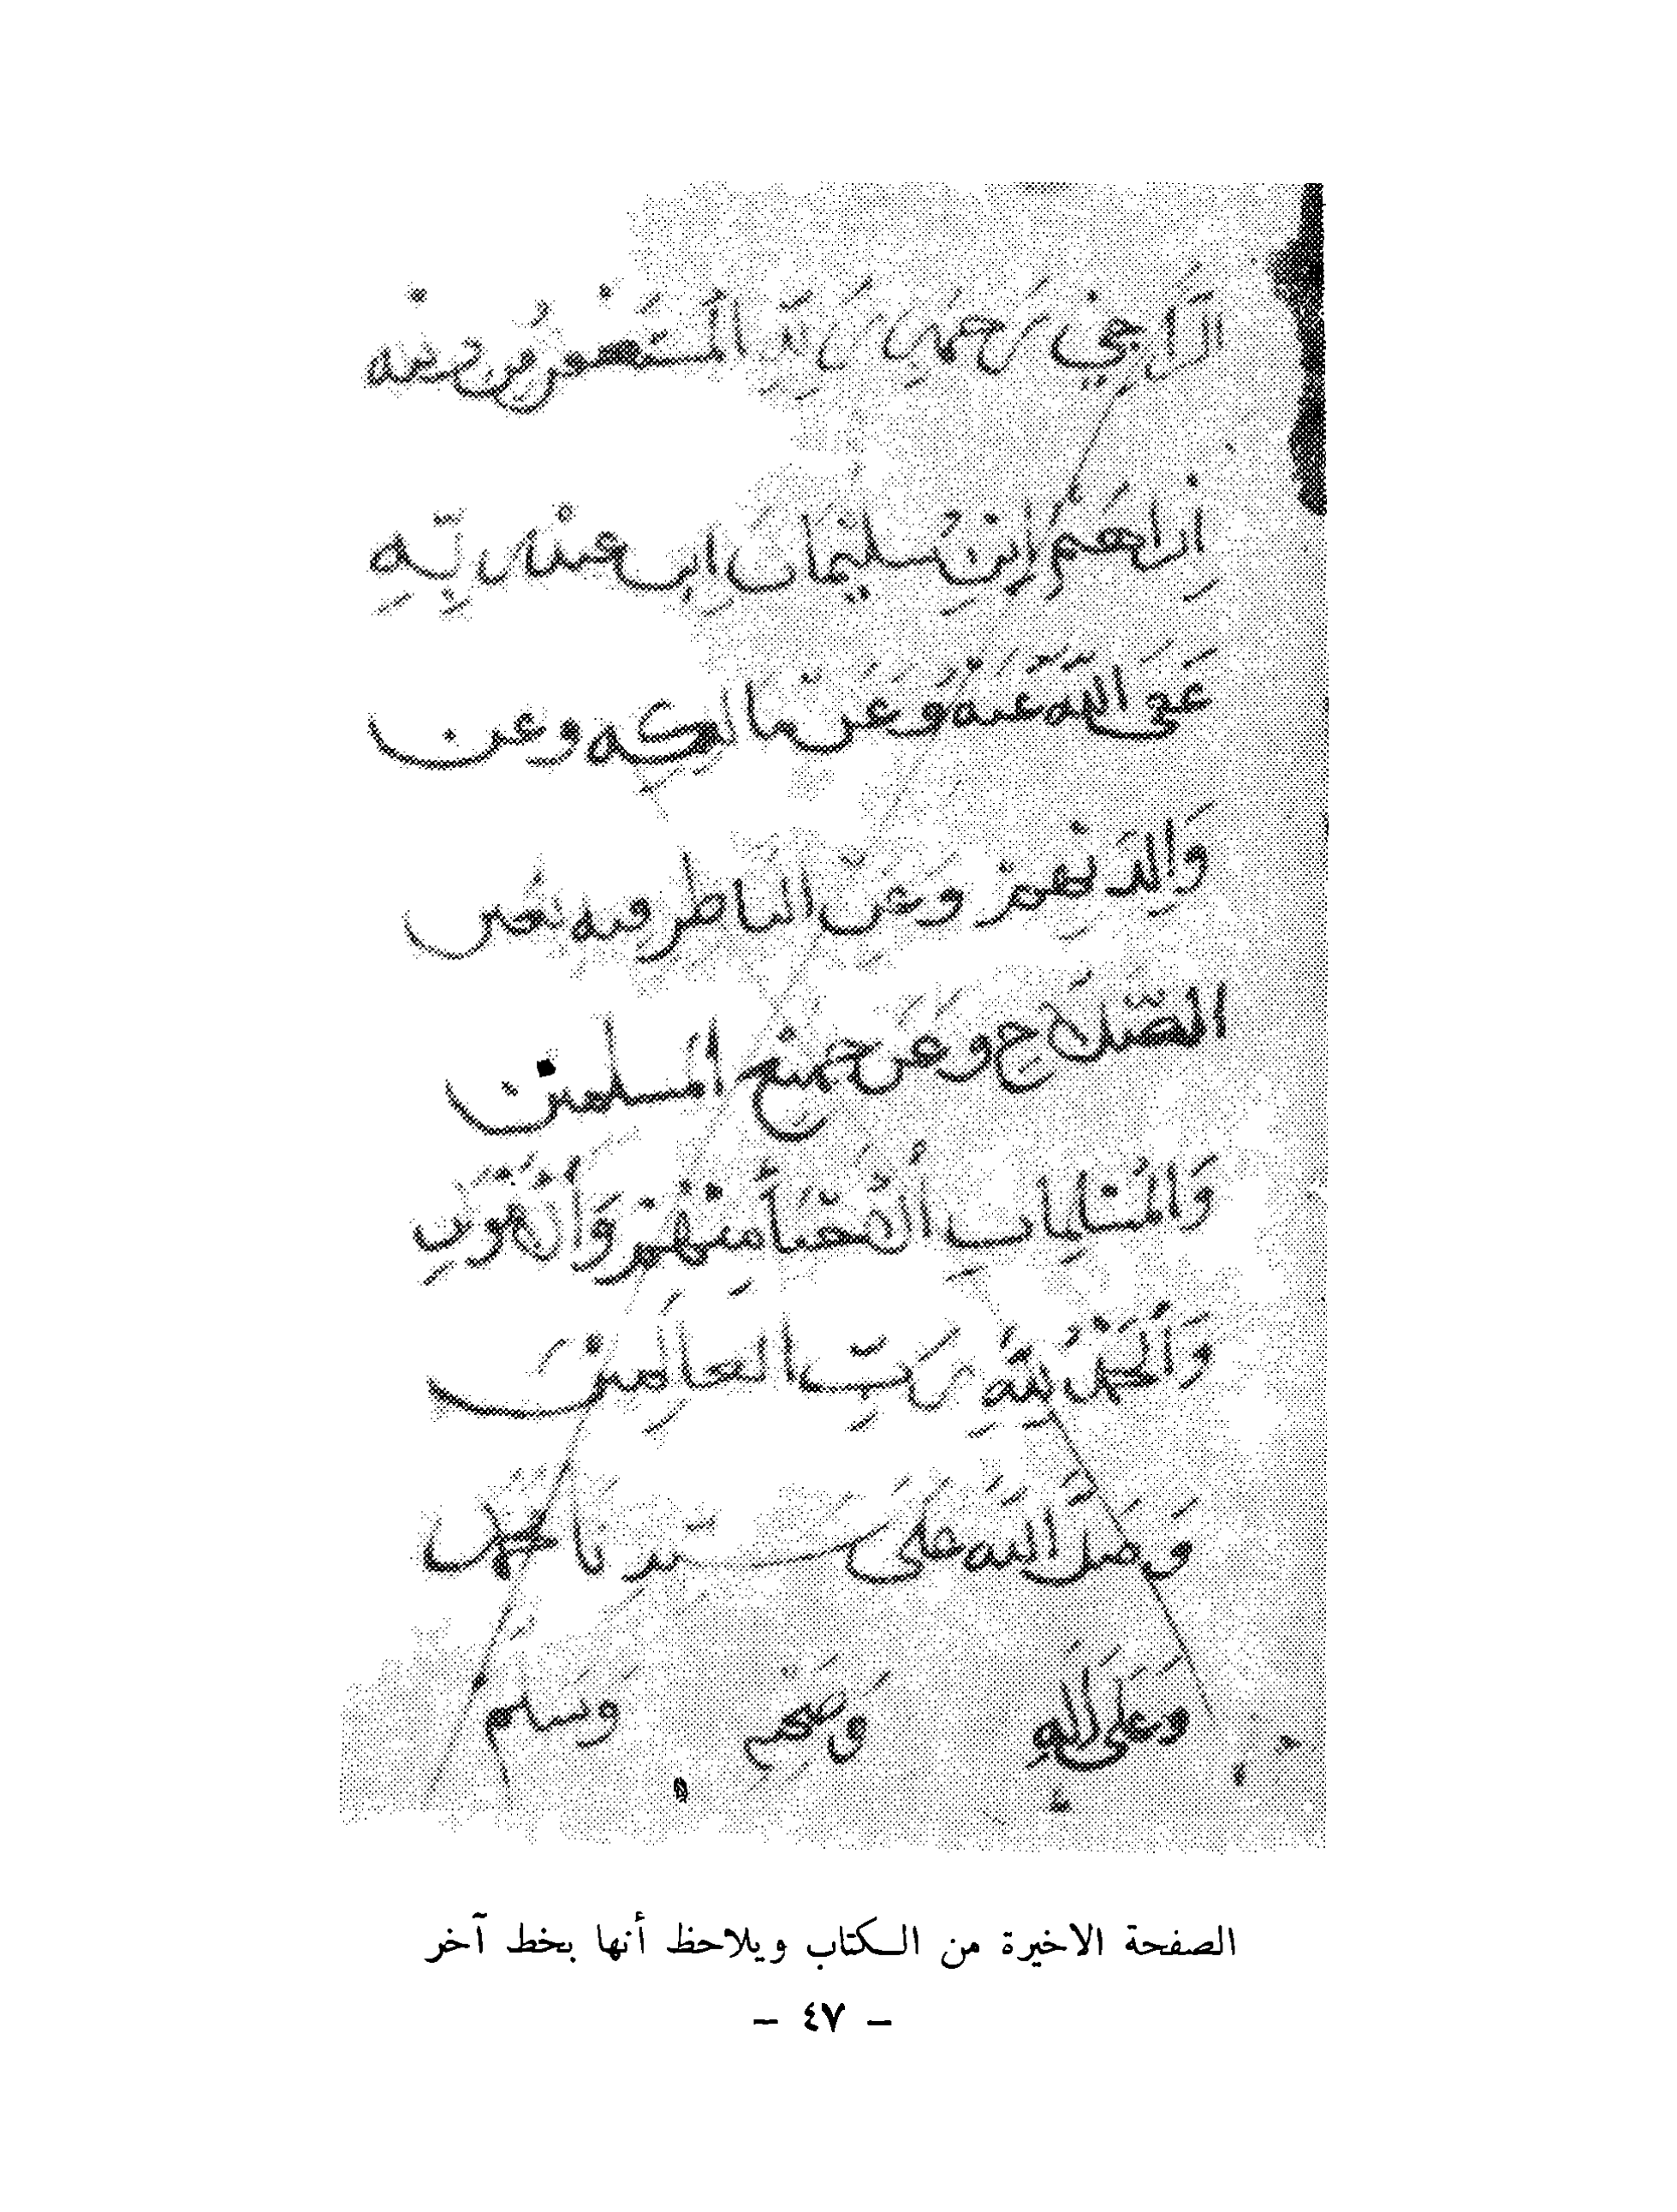 الرَّاجِي رَحْمَةَ رَبِّهِ المُسْتَغْفِرُ مِن ذنبه
إبْرَاهَيْمُ ابْنِ سُليْمَانَ ابن عبْد رَبِّهِ
عَفَى اللَّهُ عَنْهُ وَعَنْ مَالِكِه وعن
وَالِدِيْهِمْ وَعَنْ الناظر فيه بعين
الصَّلَاحِ وعَن جَمِيْع المسلمين
وَالمُسْلِمَاتِ الأَحْيَاءِ مِنْهُمْ وَالأَمْوَاتِ
وَالْحَمْدُ لِلَّهِ رَبِّ العَالَمِيْنَ
وَصَلَّى اللَّهُ عَلَى سَيِّدِنَا مُحَمَّد
وَعَلَى آلِهِ وَصَحْبِهِ وَسَلَّمْ
الصفحة الاخيرة من الـكتاب ويلاحظ أنها بخط آخر
– ٤٧ –